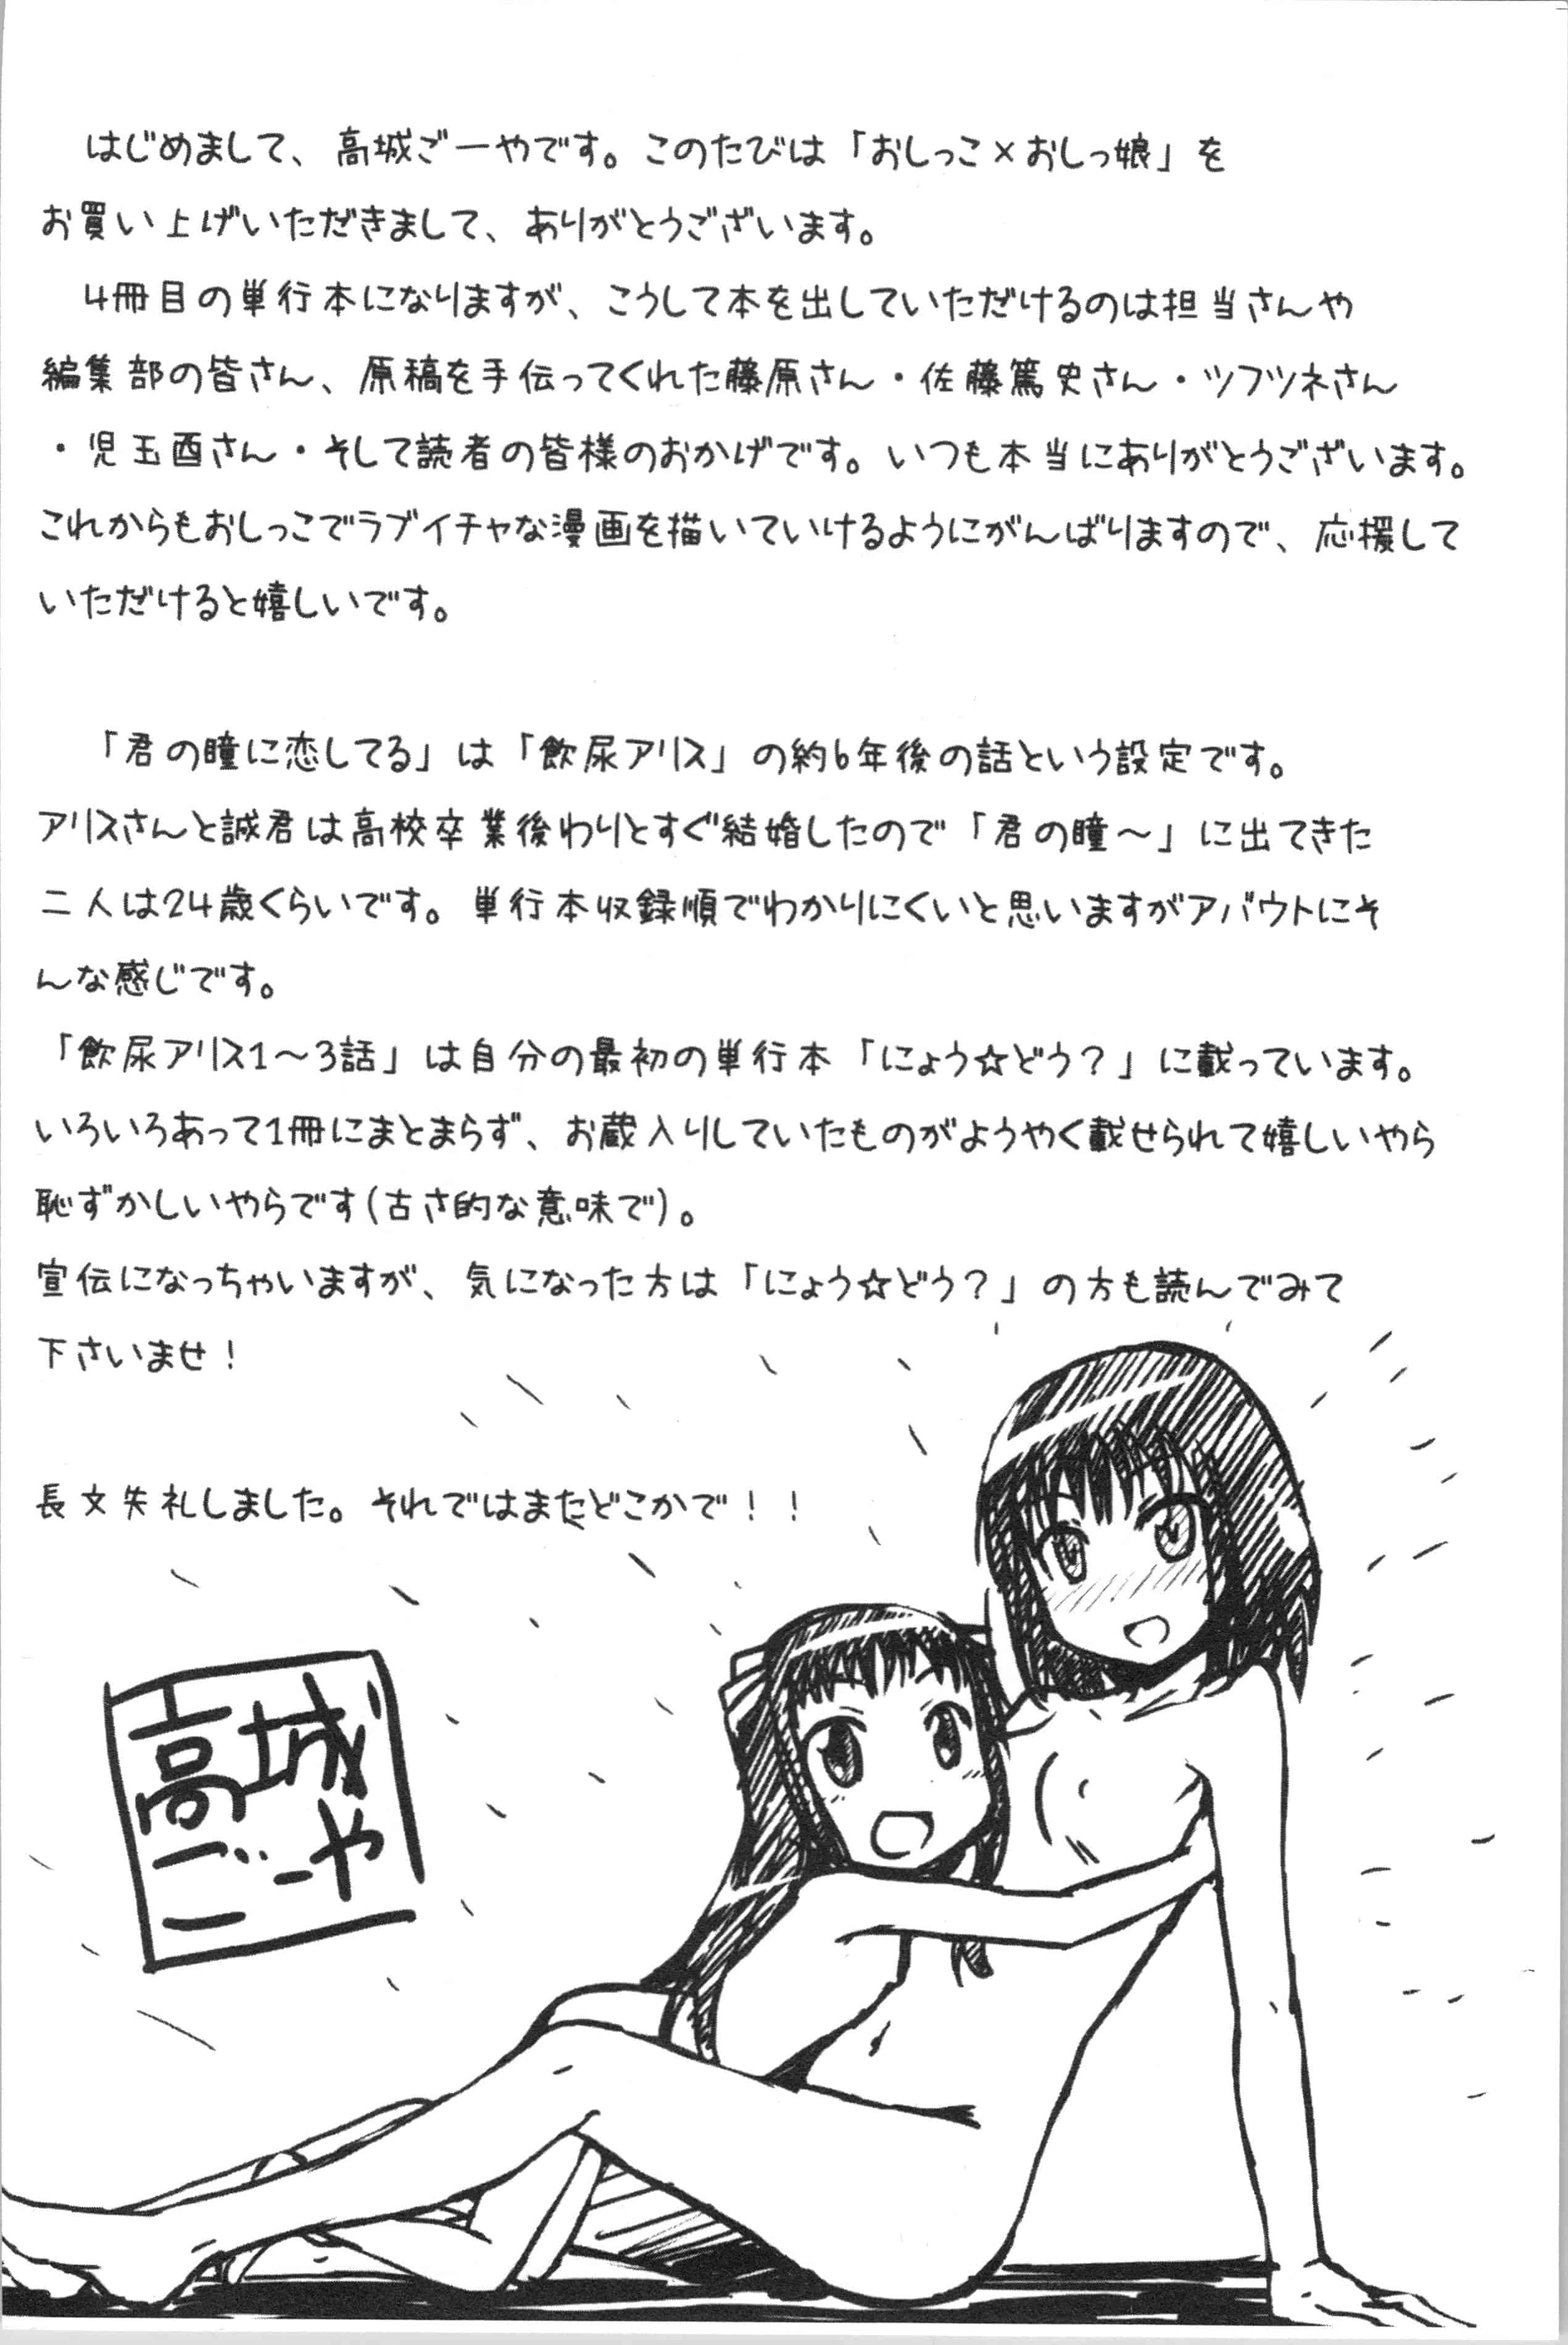 はじめまして、高城ごーやです。このたびは「おしっこ×おしっ娘」を
お買い上げいただきまして、ありがとうございます。
4冊目の単行本になりますが、こうして本を出していただけるのは担当さんや
編集部の皆さん、原稿を手伝ってくれた藤原さん・佐藤篤史さん・ツフツネさん
・児玉酉さん・そして読者の皆様のおかげです。いつも本当にありがとうございます。
これからもおしっこでラブイチャな漫画を描いていけるようにがんばりますので、応援して
いただけると嬉しいです。
「君の瞳に恋してる」は「飲尿アリス」の約6年後の話という設定です。
アリスさんと誠君は高校卒業後わりとすぐ結婚したので「君の瞳〜」に出てきた
二人は24歳くらいです。単行本収録順でわかりにくいと思いますがアバウトにそ
んな感じです。
「飲尿アリス1〜3話」は自分の最初の単行本「にょう☆どう？」に載っています。
いろいろあって1冊にまとまらず、お蔵入りしていたものがようやく載せられて嬉しいやら
恥ずかしいやらです(古さ的な意味で)。
宣伝になっちゃいますが、気になった方は「にょう☆どう？」の方も読んでみて
下さいませ！
長文失礼しました。それではまたどこかで！！
高城
ごーや